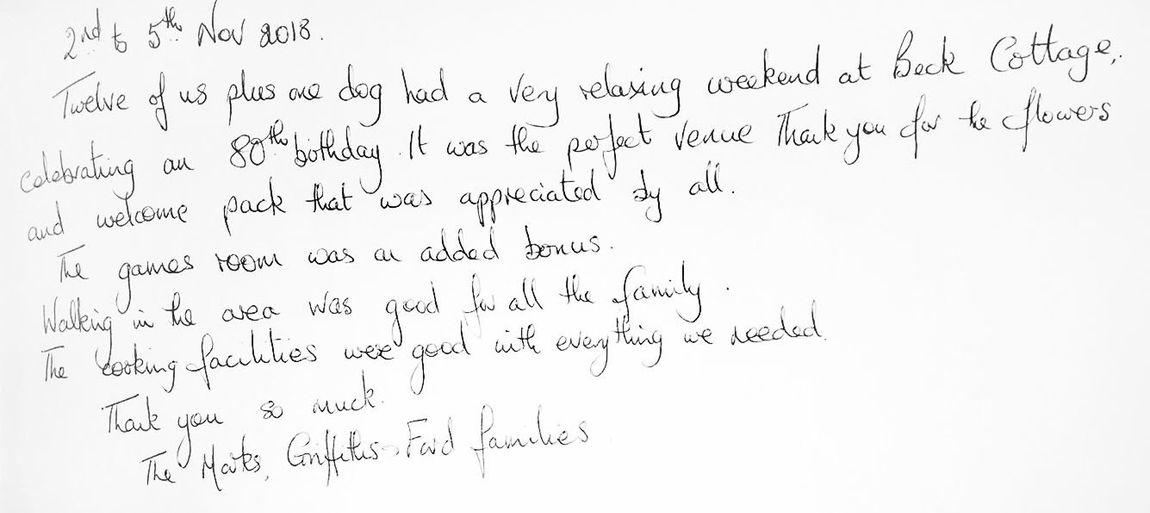 2nd to 5th Nov 2018.
Twelve of us plus one dog had a very relaxing weekend at Beck Cottage,
celebrating an 80th birthday. It was the perfect venue Thank you for the flowers
and welcome pack that was appreciated by all.
The games room was an added bonus.
Walking in the area was good for all the family.
The cooking facilities were good with everything we needed.
Thank you so much.
The Griffiths families